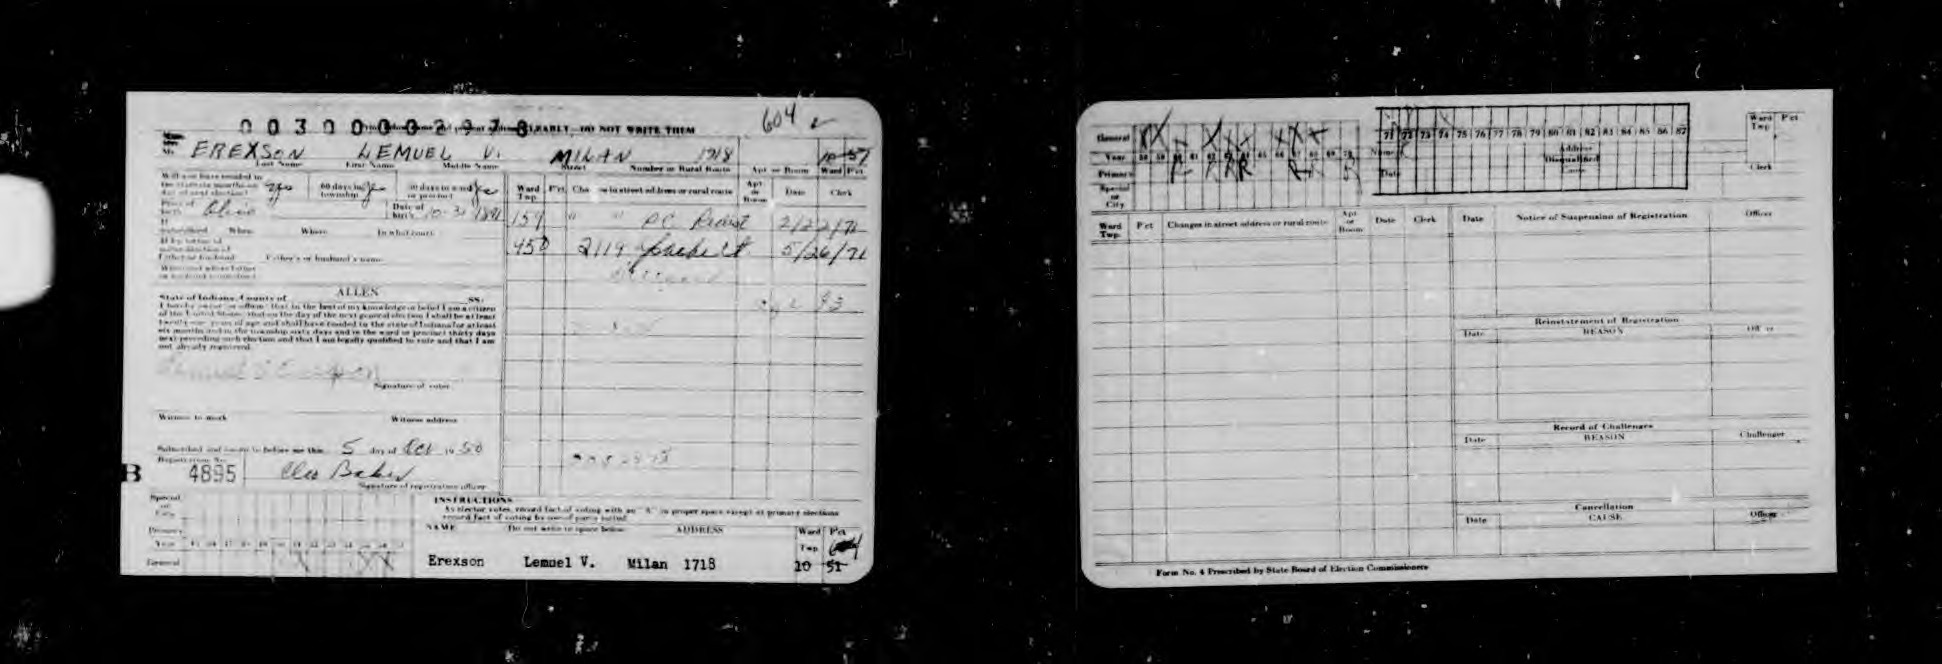 00300002978
CLEARLY—DO NOT WRITE THEM
604
EREXSON LEMUEL V. MILAN 1718 10 51
Last Name First Name Middle Name Street Number or Rural Route Apt or Room Ward Pct
Will you have resided in
the state six months on
day of next election? yes 60 days in township yes 30 days in ward or precinct yes
Ward Twp. Pct. Change in street address or rural route Apt or Room Date Clerk
Place of birth Ohio Date of birth 10-31 1891
If naturalized When Where In what court
Father's or husband's name
157 " " P.C. Redist 2/22/71
450 2119 5/26/71
State of Indiana, County of ALLEN SS:
I hereby swear (or affirm) that to the best of my knowledge or belief I am a citizen
of the United States; that on the day of the next general election I shall be at least
twenty-one years of age and shall have resided in the state of Indiana for at least
six months and in the township sixty days and in the ward or precinct thirty days
next preceding such election and that I am legally qualified to vote and that I am
not already registered.
Lemuel V Erexson
Signature of voter
Witness to mark Witness address
Subscribed and sworn to before me this 5 day of Oct 19 50
Registration No.
B 4895 Cleo Baker
Signature of registration officer
Special or City
Primary
Year
General
INSTRUCTIONS
As elector votes, record fact of voting with an "X" in proper space except at primary elections
record fact of voting by use of party initial
NAME Do not write in space below ADDRESS Ward Twp Pct
604
Erexson Lemuel V. Milan 1718 10 51
General
Year 58 59 60 61 62 63 64 65 66 67 68 69 70
Primary
Special or City
71 72 73 74 75 76 77 78 79 80 81 82 83 84 85 86 87
Name Address
Disqualified
Date Cause
Ward Twp. Pct
Clerk
Ward Twp. Pct Changes in street address or rural route Apt or Room Date Clerk
Date Notice of Suspension of Registration Officer
Reinstatement of Registration
Date REASON Officer
Record of Challenges
Date REASON Challenger
Cancellation
Date CAUSE Officer
Form No. 4 Prescribed by State Board of Election Commissioners